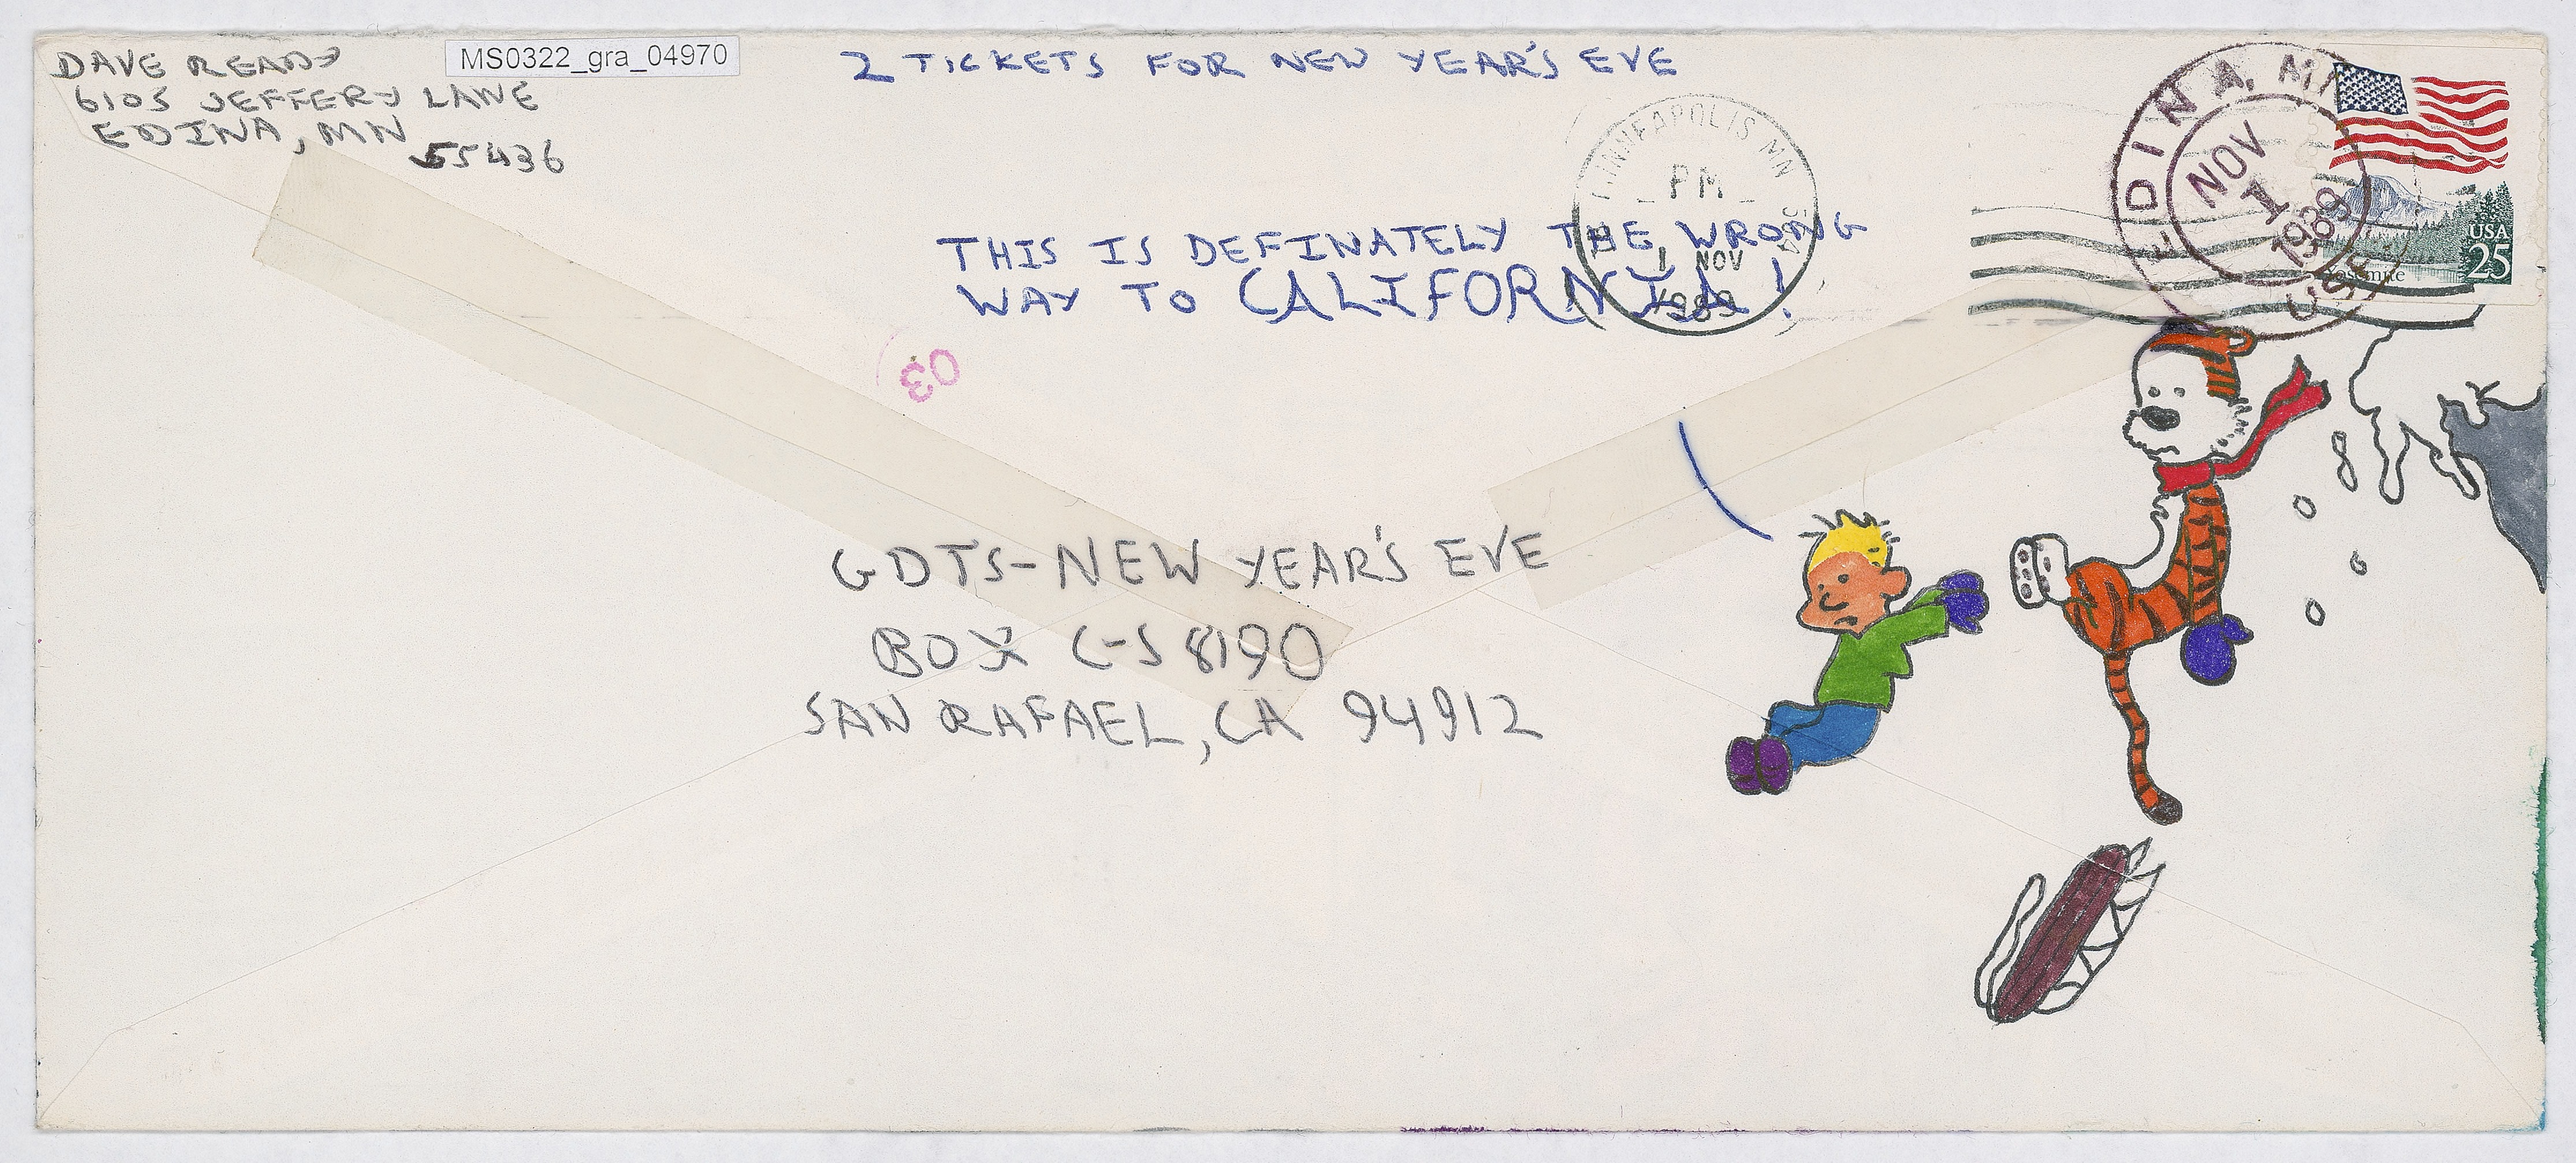 DAVE READY
6105 JEFFERY LANE
EDINA, MN
55436
MS0322_gra_04970
2 TICKETS FOR NEW YEAR'S EVE
MINNEAPOLIS MN
PM
1 NOV
1989
EDINA, MN
NOV
1
1989
USPS
USA
25
Yosemite
THIS IS DEFINATELY THE WRONG
WAY TO CALIFORNIA!
03
GDTS-NEW YEAR'S EVE
BOX C-S 8190
SAN RAFAEL, CA 94912